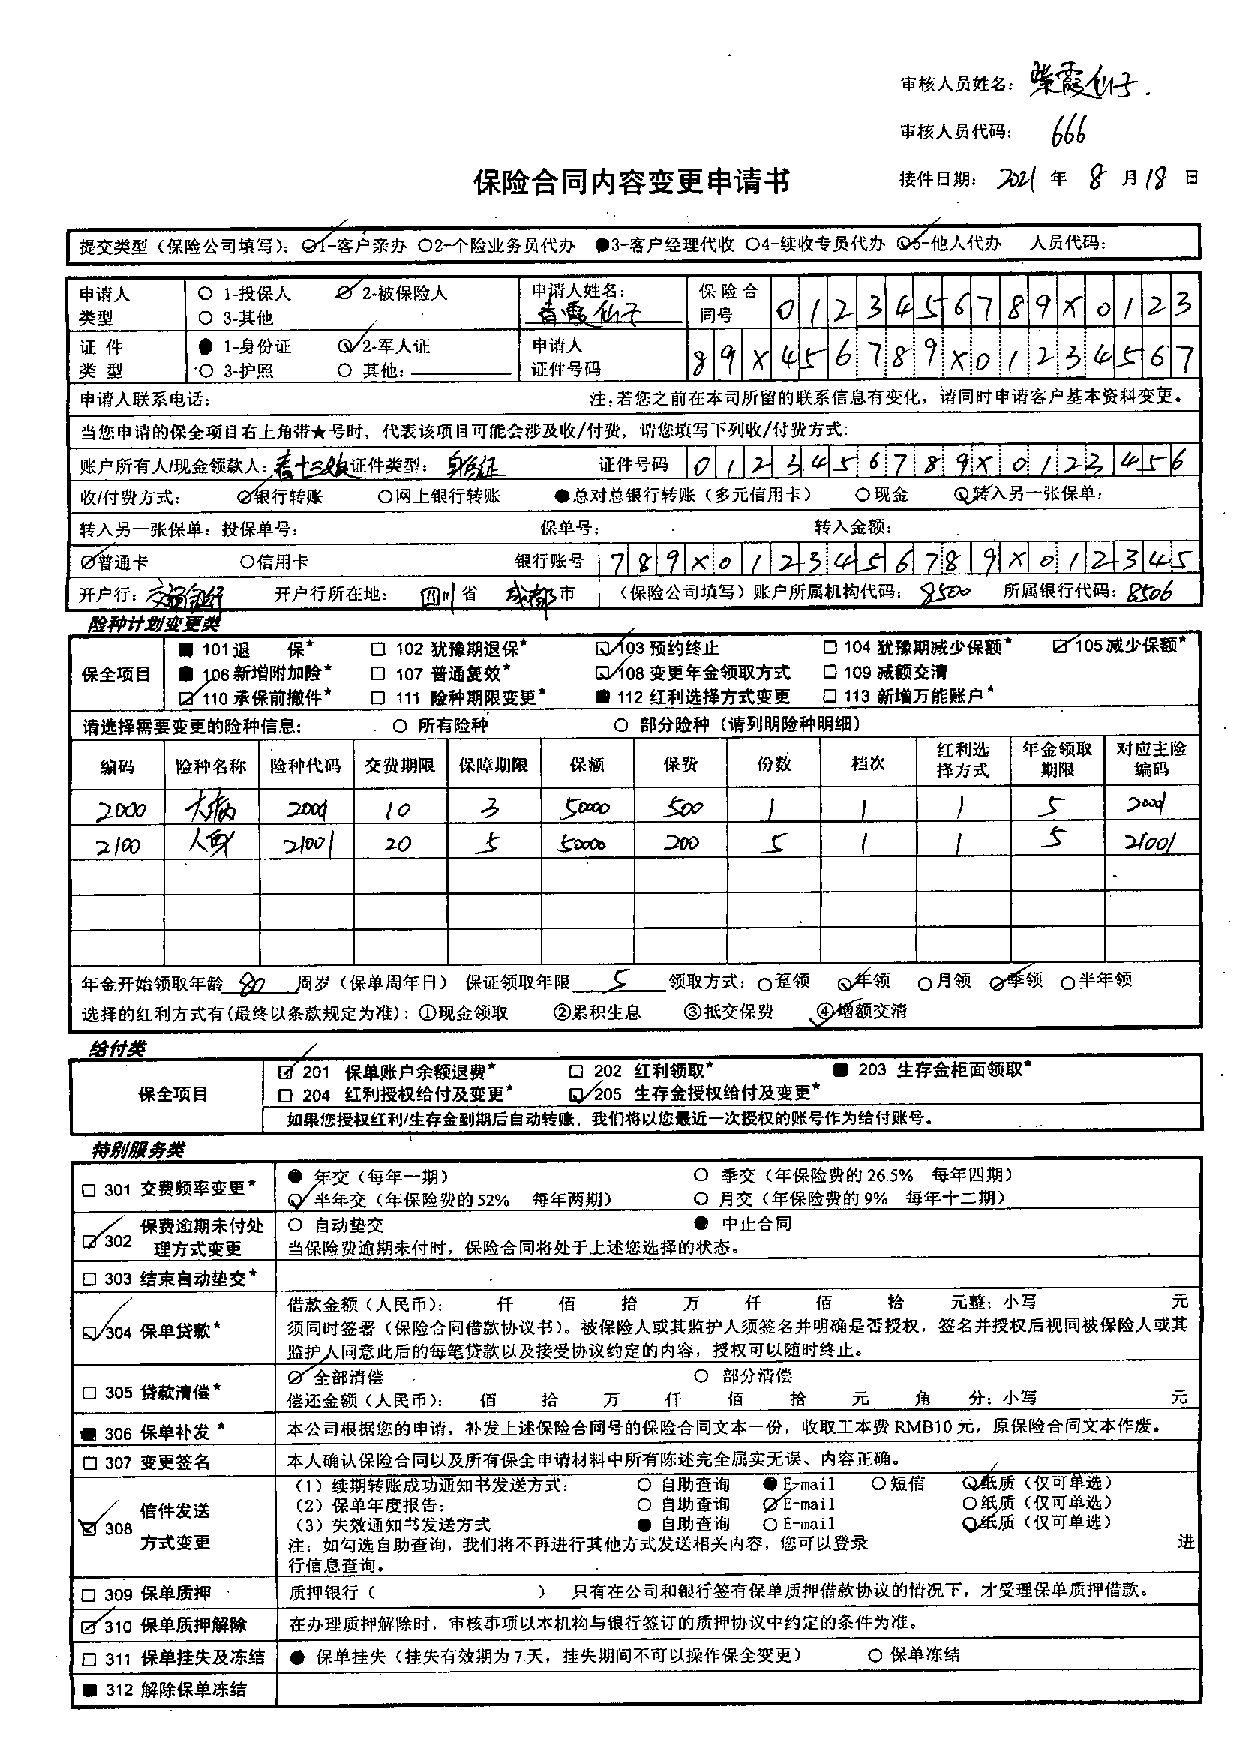 审核人员姓名：紫霞仙子.
审核人员代码：666
保险合同内容变更申请书
接件日期：2021年8月18日
提交类型（保险公司填写）：○1-客户亲办 ○2-个险业务员代办 ●3-客户经理代收 ○4-续收专员代办 ○5-他人代办 人员代码：
申请人类型 ○ 1-投保人 ○ 2-被保险人 申请人姓名：青霞仙子 保险合同号 0123456789X0123
○ 3-其他
证件类型 ● 1-身份证 ○ 2-军人证 申请人证件号码 89X456789X01234567
○ 3-护照 ○ 其他：
申请人联系电话： 注：若您之前在本司所留的联系信息有变化，请同时申请客户基本资料变更。
当您申请的保全项目右上角带★号时，代表该项目可能会涉及收/付费，请您填写下列收/付费方式：
账户所有人/现金领款人：春十三娘 证件类型：身份证 证件号码 0123456789X0123456
收/付费方式： ○银行转账 ○网上银行转账 ●总对总银行转账（多元信用卡） ○现金 ○转入另一张保单：
转入另一张保单：投保单号： 保单号： 转入金额：
○普通卡 ○信用卡 银行账号 789X0123456789X012345
开户行：交通银行 开户行所在地：四川省 成都市 （保险公司填写）账户所属机构代码：8500 所属银行代码：8506
险种计划变更类
保全项目 ■ 101退 保* □ 102 犹豫期退保* □ 103 预约终止 □ 104 犹豫期减少保额* □ 105减少保额*
■ 106 新增附加险* □ 107 普通复效* □ 108 变更年金领取方式 □ 109 减额交清
□ 110 承保前撤件* □ 111 险种期限变更* ■ 112 红利选择方式变更 □ 113 新增万能账户*
请选择需要变更的险种信息： ○ 所有险种 ○ 部分险种（请列明险种明细）
编码 险种名称 险种代码 交费期限 保障期限 保额 保费 份数 档次 红利选择方式 年金领取期限 对应主险编码
2000 大病 2001 10 3 50000 500 1 1 1 5 2001
2100 人身 21001 20 5 50000 200 5 1 1 5 21001
年金开始领取年龄 80 周岁（保单周年日） 保证领取年限 5 领取方式：○趸领 ○年领 ○月领 ○季领 ○半年领
选择的红利方式有(最终以条款规定为准)：①现金领取 ②累积生息 ③抵交保费 ④增额交清
给付类
保全项目 □ 201 保单账户余额退费* □ 202 红利领取* ■ 203 生存金柜面领取*
□ 204 红利授权给付及变更* □ 205 生存金授权给付及变更*
如果您授权红利/生存金到期后自动转账，我们将以您最近一次授权的账号作为给付账号。
特别服务类
□ 301 交费频率变更* ● 年交（每年一期） ○ 季交（年保险费的26.5% 每年四期）
○ 半年交（年保险费的52% 每年两期） ○ 月交（年保险费的9% 每年十二期）
□ 302 保费逾期未付处理方式变更 ○ 自动垫交 ● 中止合同
当保险费逾期未付时，保险合同将处于上述您选择的状态。
□ 303 结束自动垫交*
□ 304 保单贷款* 借款金额（人民币）： 仟 佰 拾 万 仟 佰 拾 元整：小写 元
须同时签署（保险合同借款协议书）。被保险人或其监护人须签名并明确是否授权，签名并授权后视同被保险人或其
监护人同意此后的每笔贷款以及接受协议约定的内容，授权可以随时终止。
□ 305 贷款清偿* ○ 全部清偿 ○ 部分清偿
偿还金额（人民币）： 佰 拾 万 仟 佰 拾 元 角 分：小写 元
■ 306 保单补发* 本公司根据您的申请，补发上述保险合同号的保险合同文本一份，收取工本费RMB10元，原保险合同文本作废。
□ 307 变更签名 本人确认保险合同以及所有保全申请材料中所有陈述完全属实无误、内容正确。
□ 308 信件发送方式变更 （1）续期转账成功通知书发送方式： ○ 自助查询 ●E-mail ○短信 ○纸质（仅可单选）
（2）保单年度报告： ○ 自助查询 ○E-mail ○纸质（仅可单选）
（3）失效通知书发送方式 ● 自助查询 ○E-mail ○纸质（仅可单选）
注：如勾选自助查询，我们将不再进行其他方式发送相关内容，您可以登录 进
行信息查询。
□ 309 保单质押 质押银行（ ） 只有在公司和银行签有保单质押借款协议的情况下，才受理保单质押借款。
□ 310 保单质押解除 在办理质押解除时，审核事项以本机构与银行签订的质押协议中约定的条件为准。
□ 311 保单挂失及冻结 ● 保单挂失（挂失有效期为7天，挂失期间不可以操作保全变更） ○ 保单冻结
■ 312 解除保单冻结